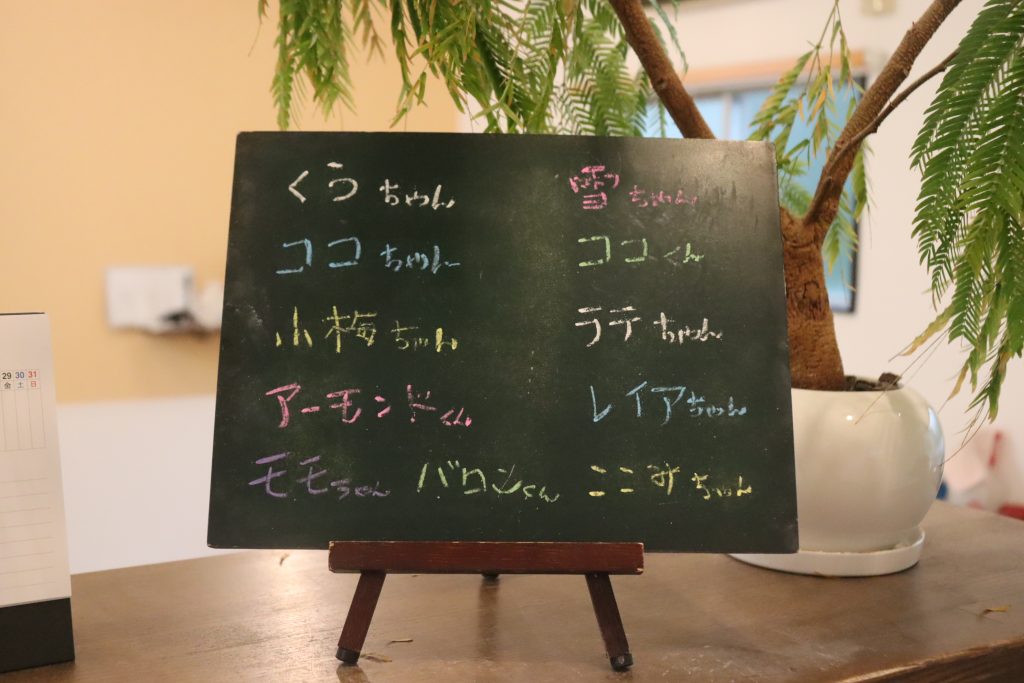 くうちゃん 雪ちゃん
ココちゃん ココくん
小梅ちゃん ラテちゃん
アーモンドくん レイアちゃん
モモちゃん バロンくん ここみちゃん
29 30 31
金 土 日